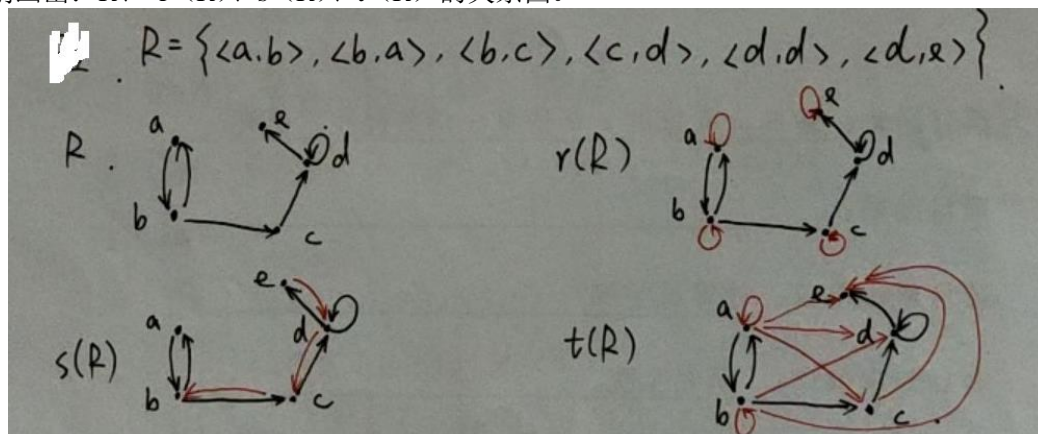 R = {<a,b>, <b,a>, <b,c>, <c,d>, <d,d>, <d,e>}
R. a b c d e
r(R) a b c d e
s(R) a b c d e
t(R) a b c d e